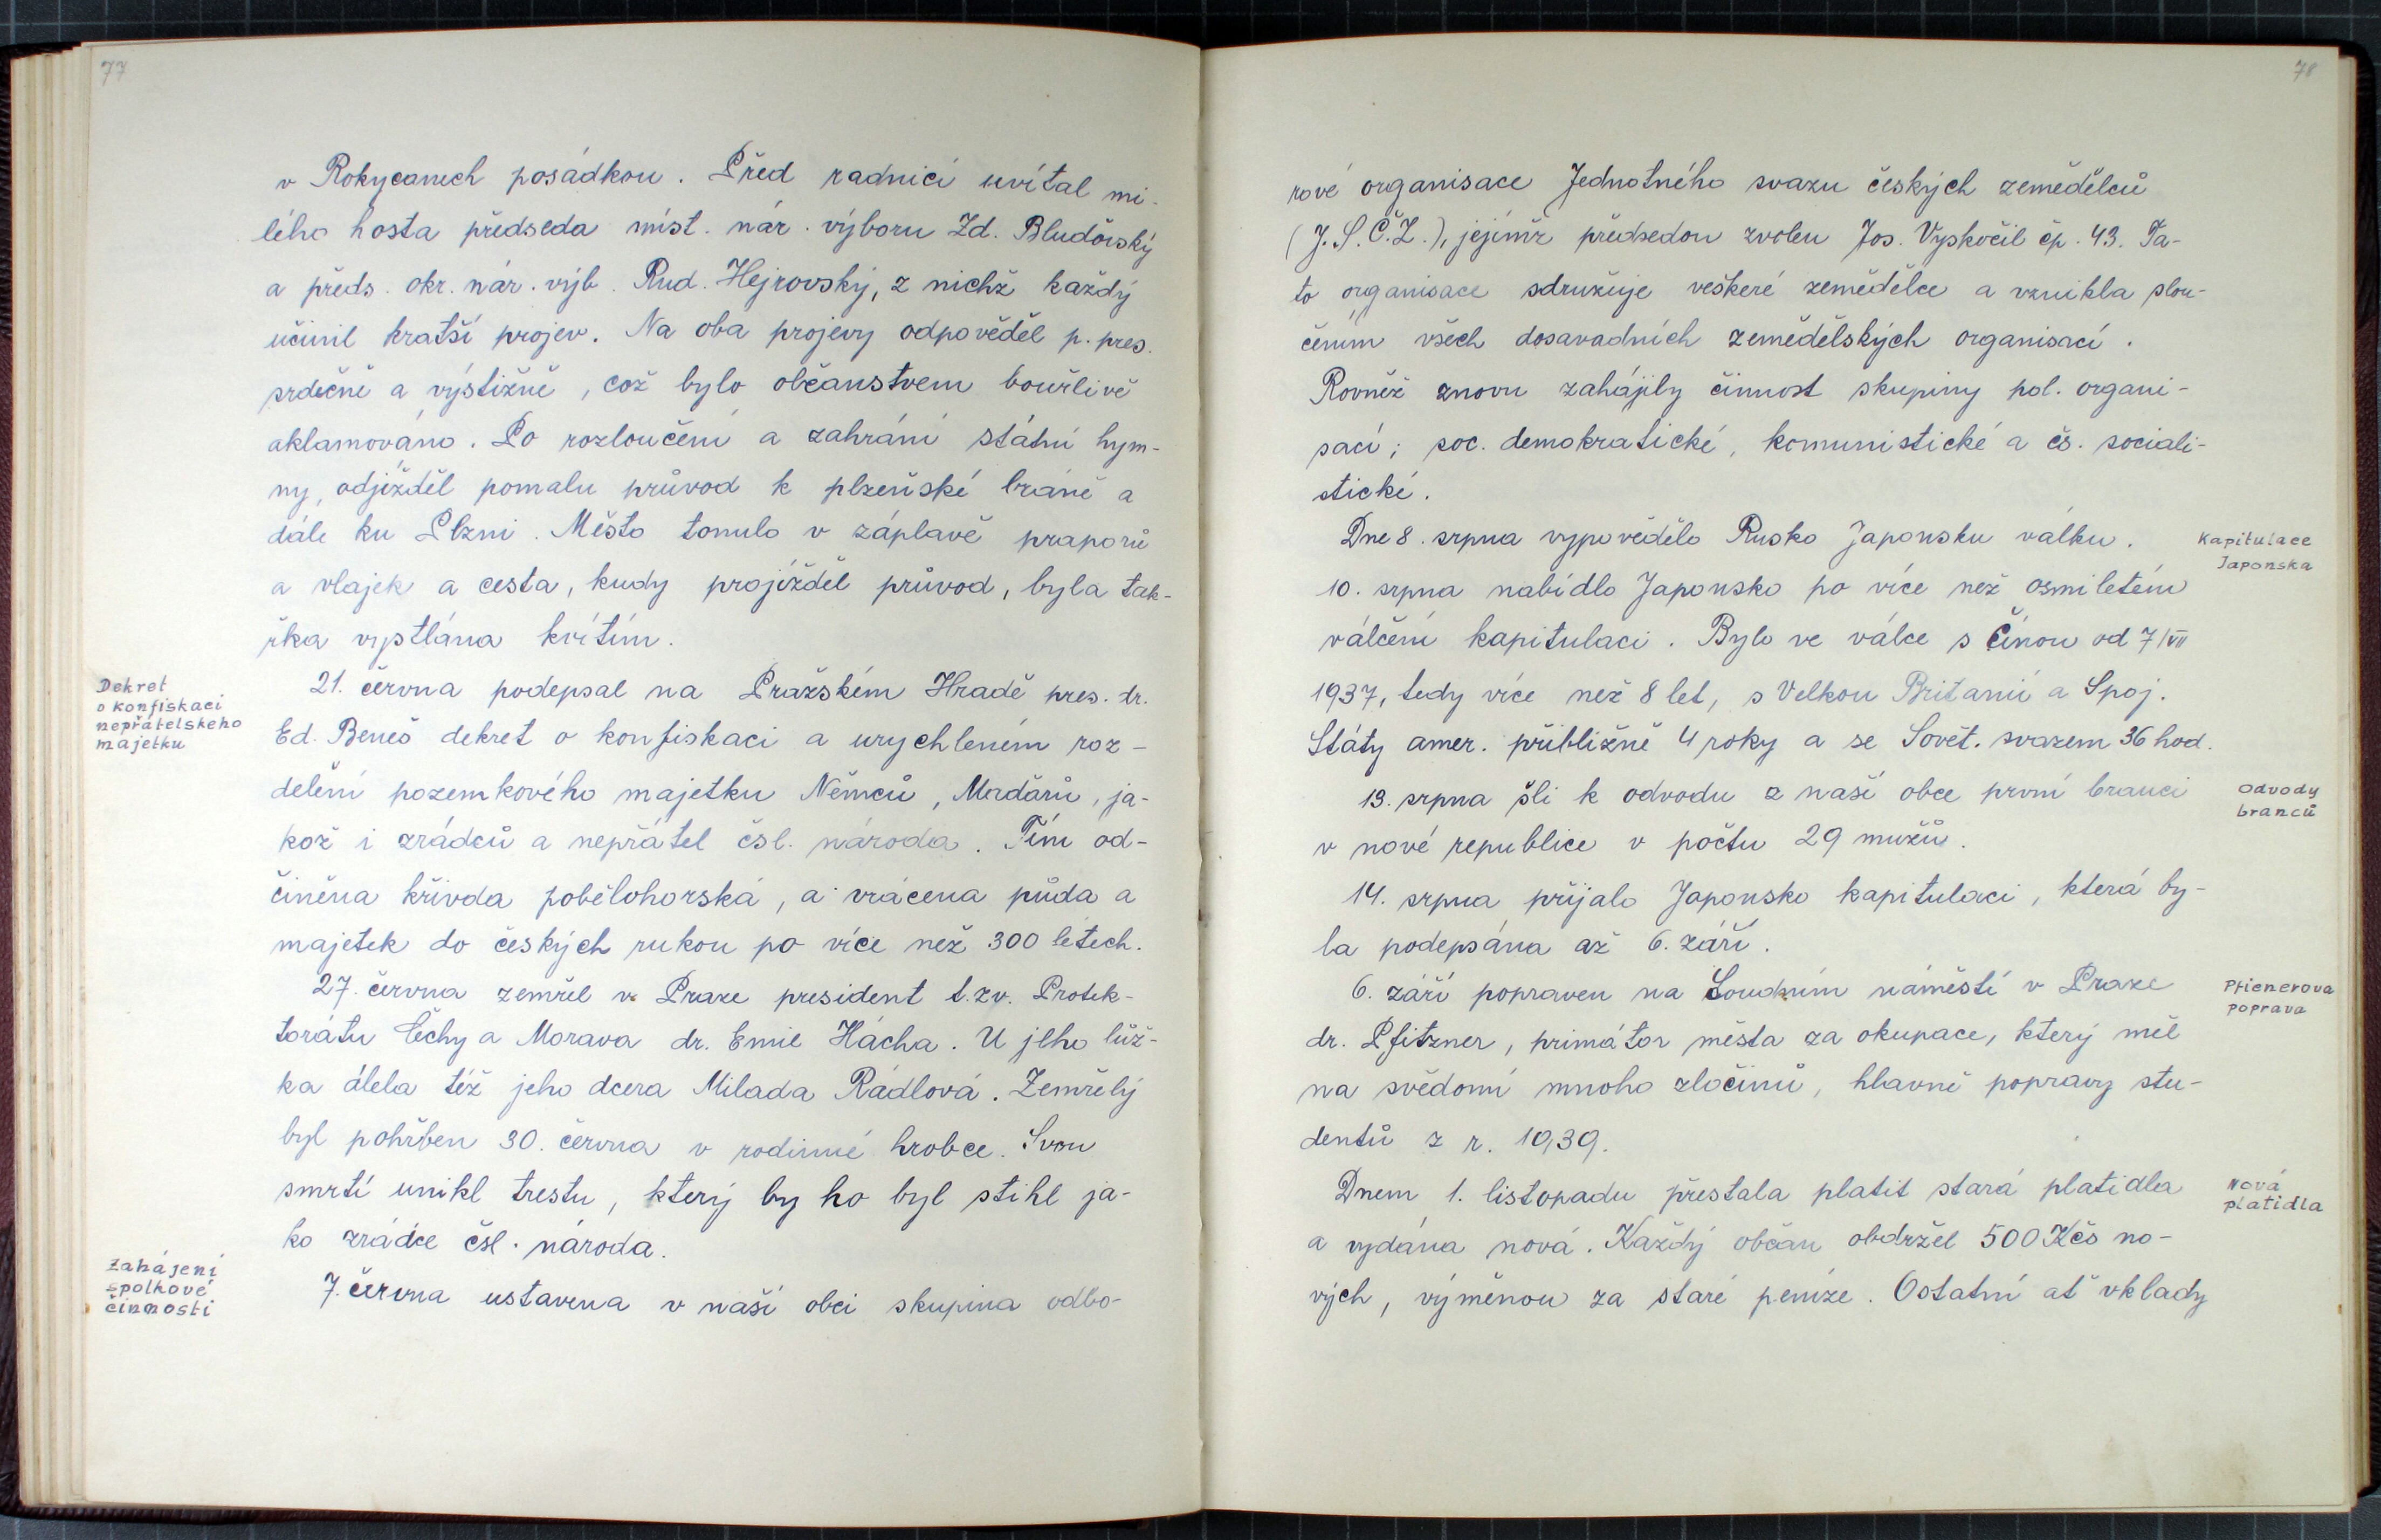 77
v Rokycanech posádkou. Před radnicí uvítal mi-
lého hosta předseda míst. nár. výboru Zd. Bludovský
a předs. okr. nár. výb. Rud. Hejrovský, z nichž každý
učinil kratší projev. Na oba projevy odpověděl p. pres.
srdečně a výstižně, což bylo občanstvem bouřlivě
aklamováno. Po rozloučení a zahrání státní hym-
ny, odjížděl pomalu průvod k plzeňské bráně a
dále ku Plzni. Město tonulo v záplavě praporů
a vlajek a cesta, kudy projížděl průvod, byla tak-
řka vystlána kvítím.
Dekret
o konfiskaci
nepřátelskeho
majetku
21. června podepsal na Pražském Hradě pres. dr.
Ed. Beneš dekret o konfiskaci a urychleném roz-
delění pozemkového majetku Němců, Maďarů, ja-
kož i zrádců a nepřátel čsl. národa. Tím od-
činěna křivda pobělohorská, a vrácena půda a
majetek do českých rukou po více než 300 létech.
27. června zemřel v Praze president t.zv. Protek-
torátu Čechy a Morava dr. Emil Hácha. U jeho lůž-
ka dlela též jeho dcera Milada Rádlová. Zemřelý
byl pohřben 30. června v rodinné hrobce. Svou
smrtí unikl trestu, který by ho byl stihl ja-
ko zrádce čsl. národa.
Zahájení
spolkové
činnosti
7. června ustavena v naší obci skupina odbo-
78
rové organisace Jednotného svazu českých zemědělců
(J.S.Č.Z.), jejímž předsedou zvolen Jos. Vyskočil čp. 43. Ta-
to organisace sdružuje veškeré zemědělce a vznikla slou-
čením všech dosavadních zemědělských organisací.
Rovněž znovu zahájily činnost skupiny pol. organi-
sací; soc. demokratické, komunistické a čs. sociali-
stické.
Dne 8. srpna vypovědělo Rusko Japonsku válku.
Kapitulace
Japonska
10. srpna nabídlo Japonsko po více než osmiletém
válčení kapitulaci. Bylo ve válce s Čínou od 7/VII
1937, tedy více než 8 let, s Velkou Britanií a Spoj.
Státy amer. přibližně 4 roky a se Sovět. svazem 36 hod.
13. srpna šli k odvodu z naší obce první branci
Odvody
branců
v nové republice v počtu 29 mužů.
14. srpna přijalo Japonsko kapitulaci, která by-
la podepsána až 6. září.
6. září popraven na Soudním náměstí v Praze
Pficnerova
poprava
dr. Pfitzner, primátor města za okupace, který měl
na svědomí mnoho zločinů, hlavně popravy stu-
dentů z r. 1939.
Dnem 1. listopadu přestala platit stará platidla
Nová
platidla
a vydána nová. Každý občan obdržel 500 Kčs no-
vých, výměnou za staré peníze. Ostatní ať vklady